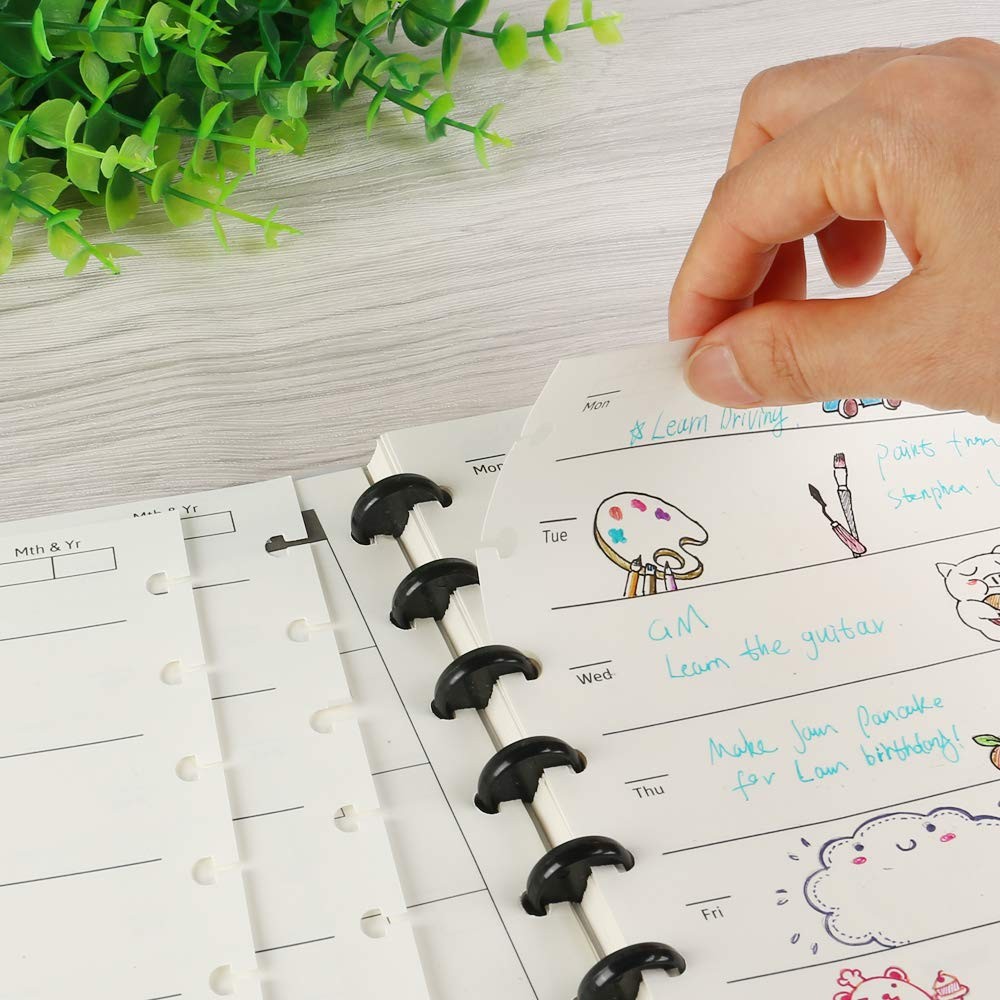 Mth & Yr
Mth & Yr
Mon
Mon
Learn Driving
Tue
paint from
Wed
GM
Learn the guitar.
Thu
Make Jam Pancake
for Lam birthday!
Fri